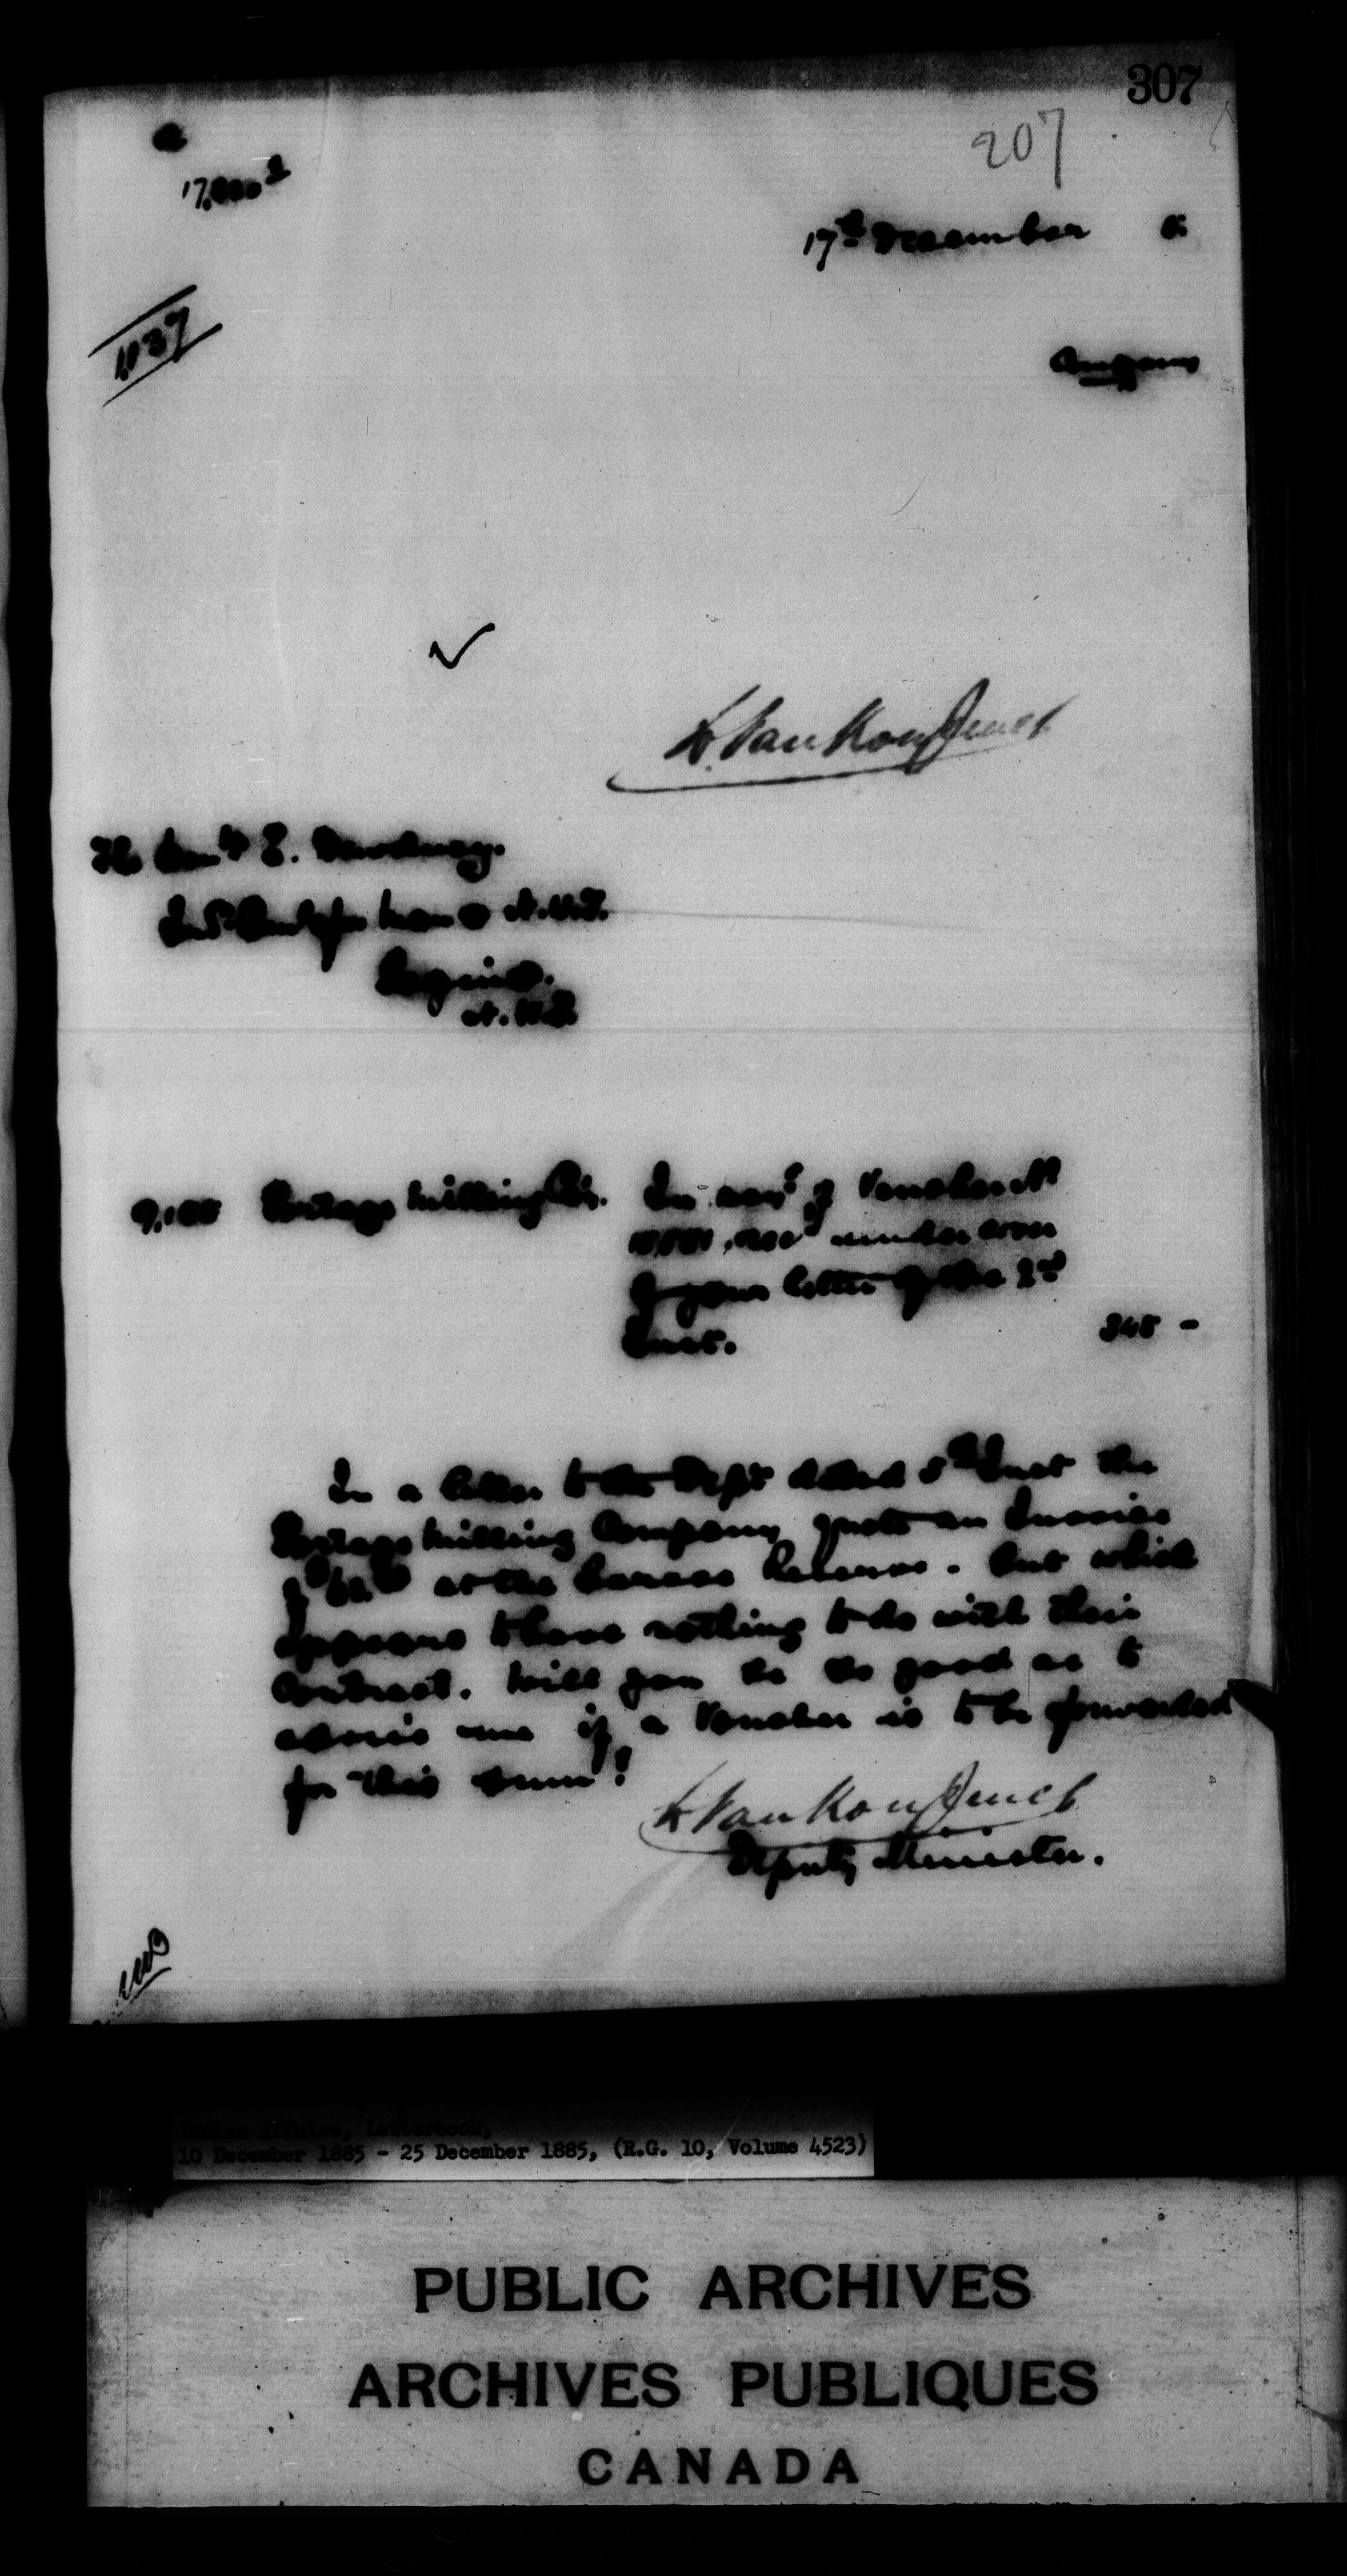 307
207
17th December 5.
1037
Company
L. VanKoughnet
E. Dewdney.
N.W.T.
Regina.
N.W.T.
Portage Milling Co'y. In pay't of Voucher No
rec'd under cover
of your letter of the 2nd
Inst. 345 -
In a letter to the Dep't dated 5th Inst the
Portage Milling Company quote an Invoice
of at the Reserve. but which
appears to have nothing to do with their
Contract. Will you be so good as to
advise me if a Voucher is to be forwarded
for this sum?
L. VanKoughnet
Deputy Minister.
Indian Affairs, Letterbook,
10 December 1885 - 25 December 1885, (R.G. 10, Volume 4523)
PUBLIC ARCHIVES
ARCHIVES PUBLIQUES
CANADA